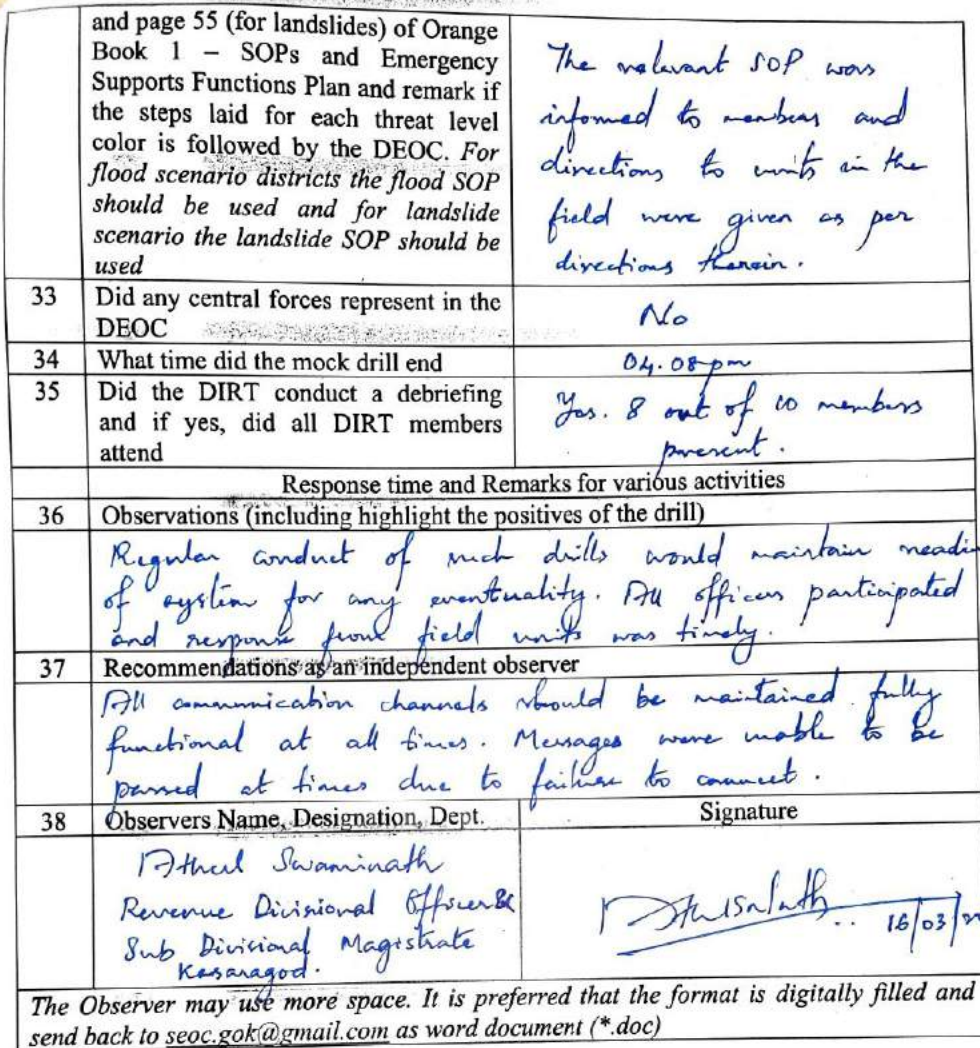 and page 55 (for landslides) of Orange
Book 1 – SOPs and Emergency
Supports Functions Plan and remark if
the steps laid for each threat level
color is followed by the DEOC. For
flood scenario districts the flood SOP
should be used and for landslide
scenario the landslide SOP should be
used
The relevant SOP was
informed to members and
directions to units in the
field were given as per
directions therein.
33 Did any central forces represent in the
DEOC
No
34 What time did the mock drill end
04.08pm
35 Did the DIRT conduct a debriefing
and if yes, did all DIRT members
attend
Yes. 8 out of 10 members
present.
Response time and Remarks for various activities
36 Observations (including highlight the positives of the drill)
Regular conduct of such drills would maintain readi
of system for any eventuality. All officers participated
and response from field units was timely.
37 Recommendations as an independent observer
All communication channels should be maintained fully
functional at all times. Messages were unable to be
passed at times due to failure to connect.
38 Observers Name, Designation, Dept.
Signature
Athul Swaminath
Revenue Divisional Officer &
Sub Divisional Magistrate
Kasaragod.
16/03/
The Observer may use more space. It is preferred that the format is digitally filled and
send back to seoc.gok@gmail.com as word document (*.doc)